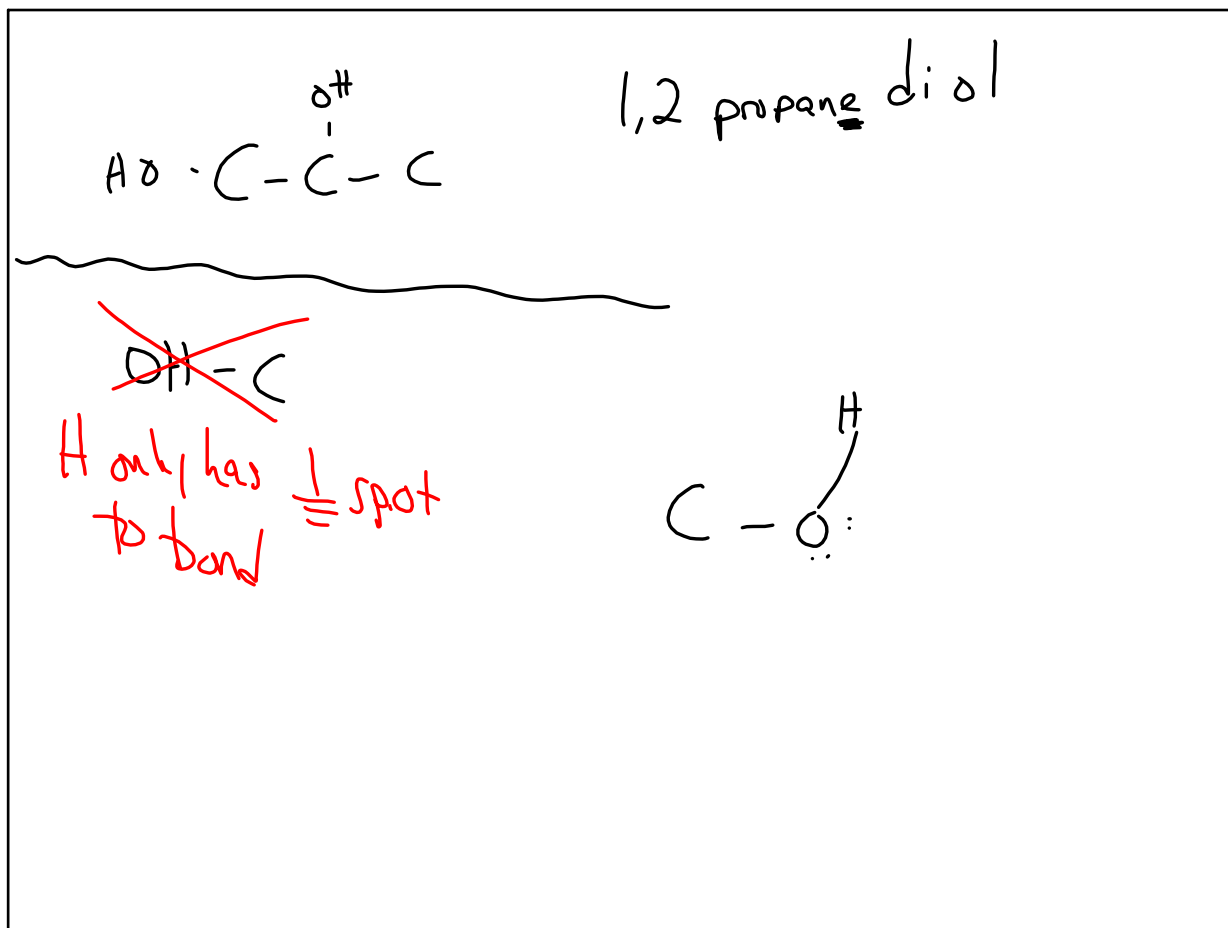 OH
HO · C - C - C
1,2 propane diol
OH - C
H only has 1 spot
to bond
H
C - O :
··